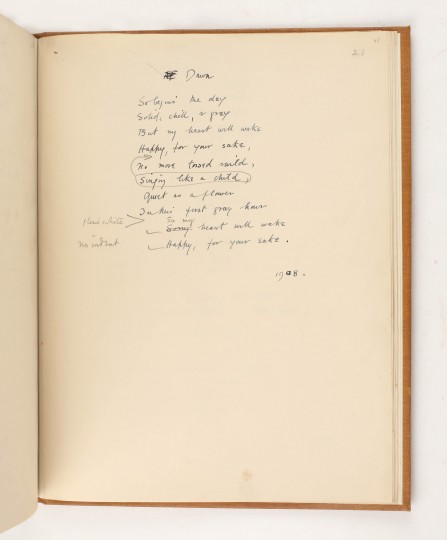 Dawn
So begins the day
Solid, chill, & gray
But my heart will wake
Happy, for your sake,
No more tossed wild,
Singing like a child,
Quiet as a flower
In this first gray hour
So my
heart will wake
Happy, for your sake.
no indent
1908.